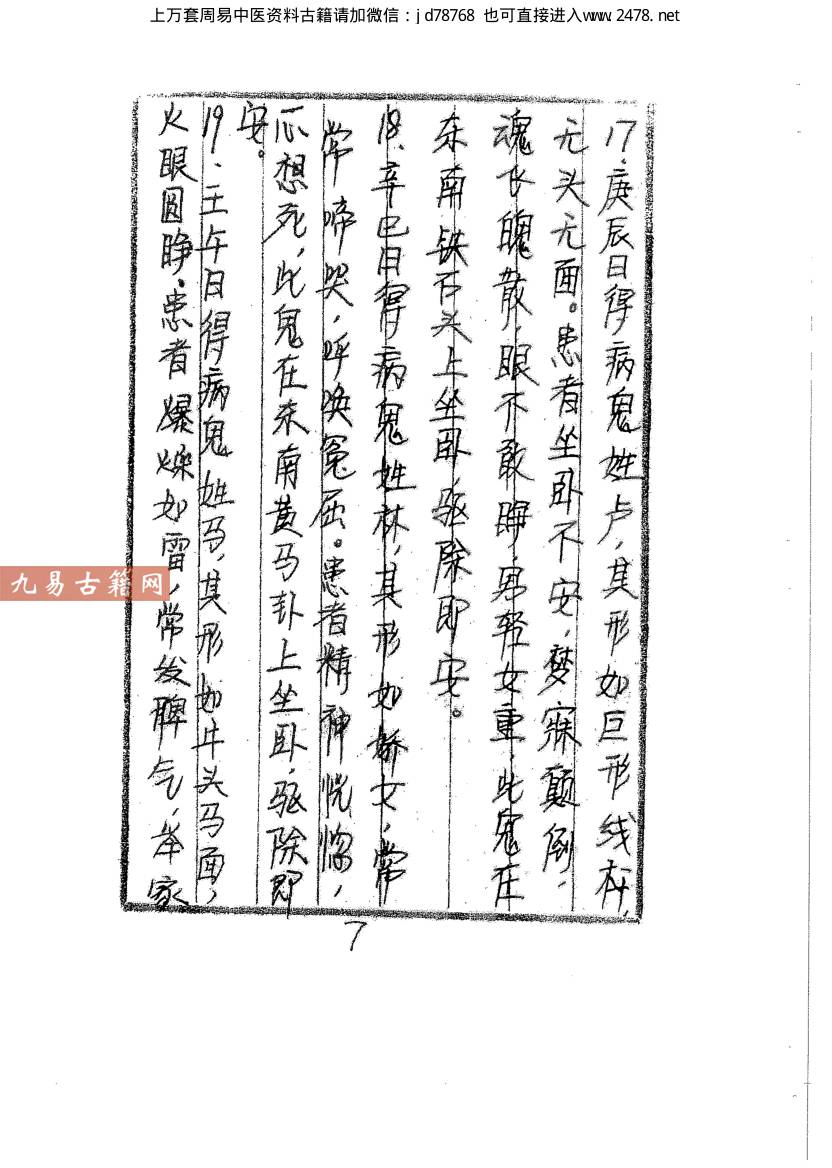 上万套周易中医资料古籍请加微信：jd78768 也可直接进入www.2478.net
17.庚辰日得病鬼姓卢，其形如巨形线
无头无面。患者坐卧不安，梦寐颠倒，
魂飞魄散，眼不敢睁，男轻女重，此鬼在
东南铁石头上坐卧，驱除即安。
18、辛巳日得病鬼姓林，其形如娇女，常
常啼哭，呼唤冤屈。患者精神恍惚，
心想死，此鬼在东南黄马卦上坐卧，驱除即
安。
19、壬午日得病鬼姓马，其形如牛头马面，
火眼圆睁，患者爆燥如雷，常发脾气，举家
7
九易古籍网